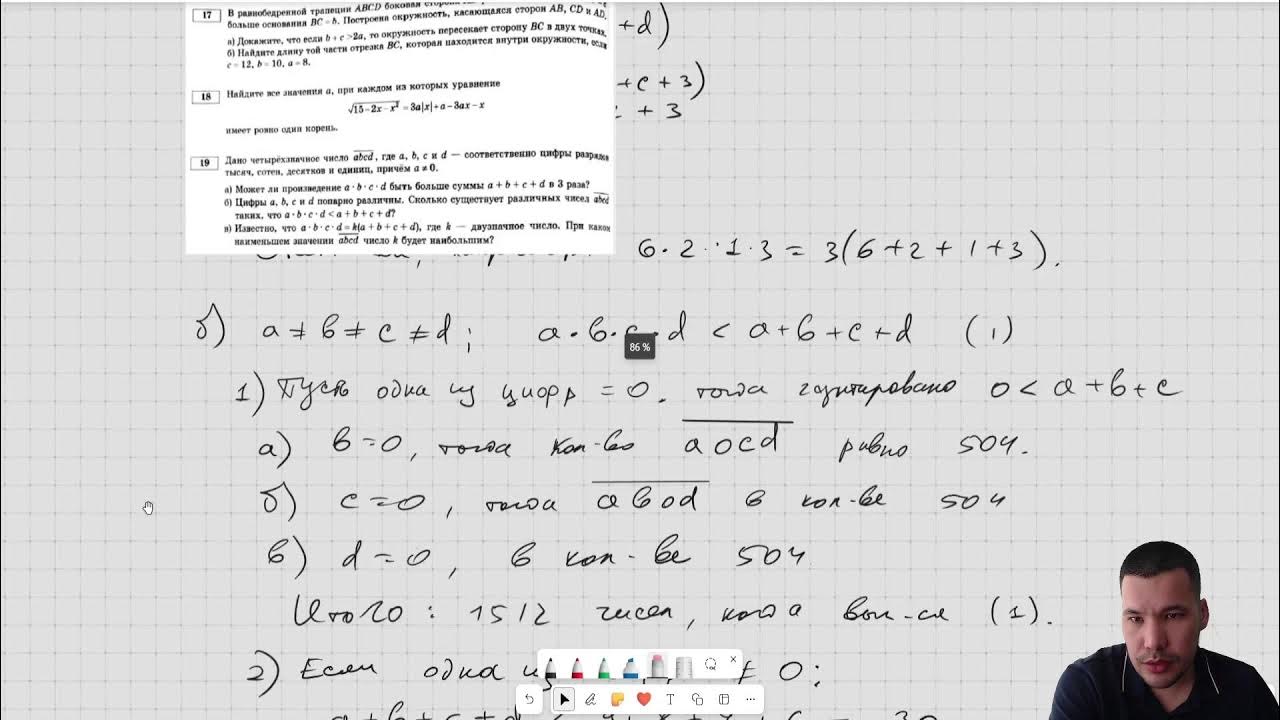 17 В равнобедренной трапеции ABCD боковая
больше основания BC = b. Построена окружность, касающаяся сторон AB, CD и AD,
а) Докажите, что если b + c > 2a, то окружность пересекает сторону BC в двух точках.
б) Найдите длину той части отрезка BC, которая находится внутри окружности, если
c = 12, b = 10, a = 8.
18 Найдите все значения a, при каждом из которых уравнение
√15 − 2x − x² = 3a|x| + a − 3ax − x
имеет ровно один корень.
19 Дано четырёхзначное число abcd, где a, b, c и d — соответственно цифры разряда
тысяч, сотен, десятков и единиц, причём a ≠ 0.
а) Может ли произведение a · b · c · d быть больше суммы a + b + c + d в 3 раза?
б) Цифры a, b, c и d попарно различны. Сколько существует различных чисел abcd
таких, что a · b · c · d < a + b + c + d?
в) Известно, что a · b · c · d = k(a + b + c + d), где k — двузначное число. При каком
наименьшем значении abcd число k будет наибольшим?
+ d)
+ c + 3)
+ 3
6 · 2 · 1 · 3 = 3(6 + 2 + 1 + 3).
б) a ≠ b ≠ c ≠ d; a · b · c · d < a + b + c + d (1)
86 %
1) Пусть одна из цифр = 0, тогда гарантировано 0 < a + b + c
а) b = 0, тогда кол-во a0cd равно 504.
б) c = 0, тогда ab0d в кол-ве 504
в) d = 0, в кол-ве 504
Итого: 1512 чисел, когда вып-ся (1).
2) Если одна из ≠ 0:
a + b + c + d